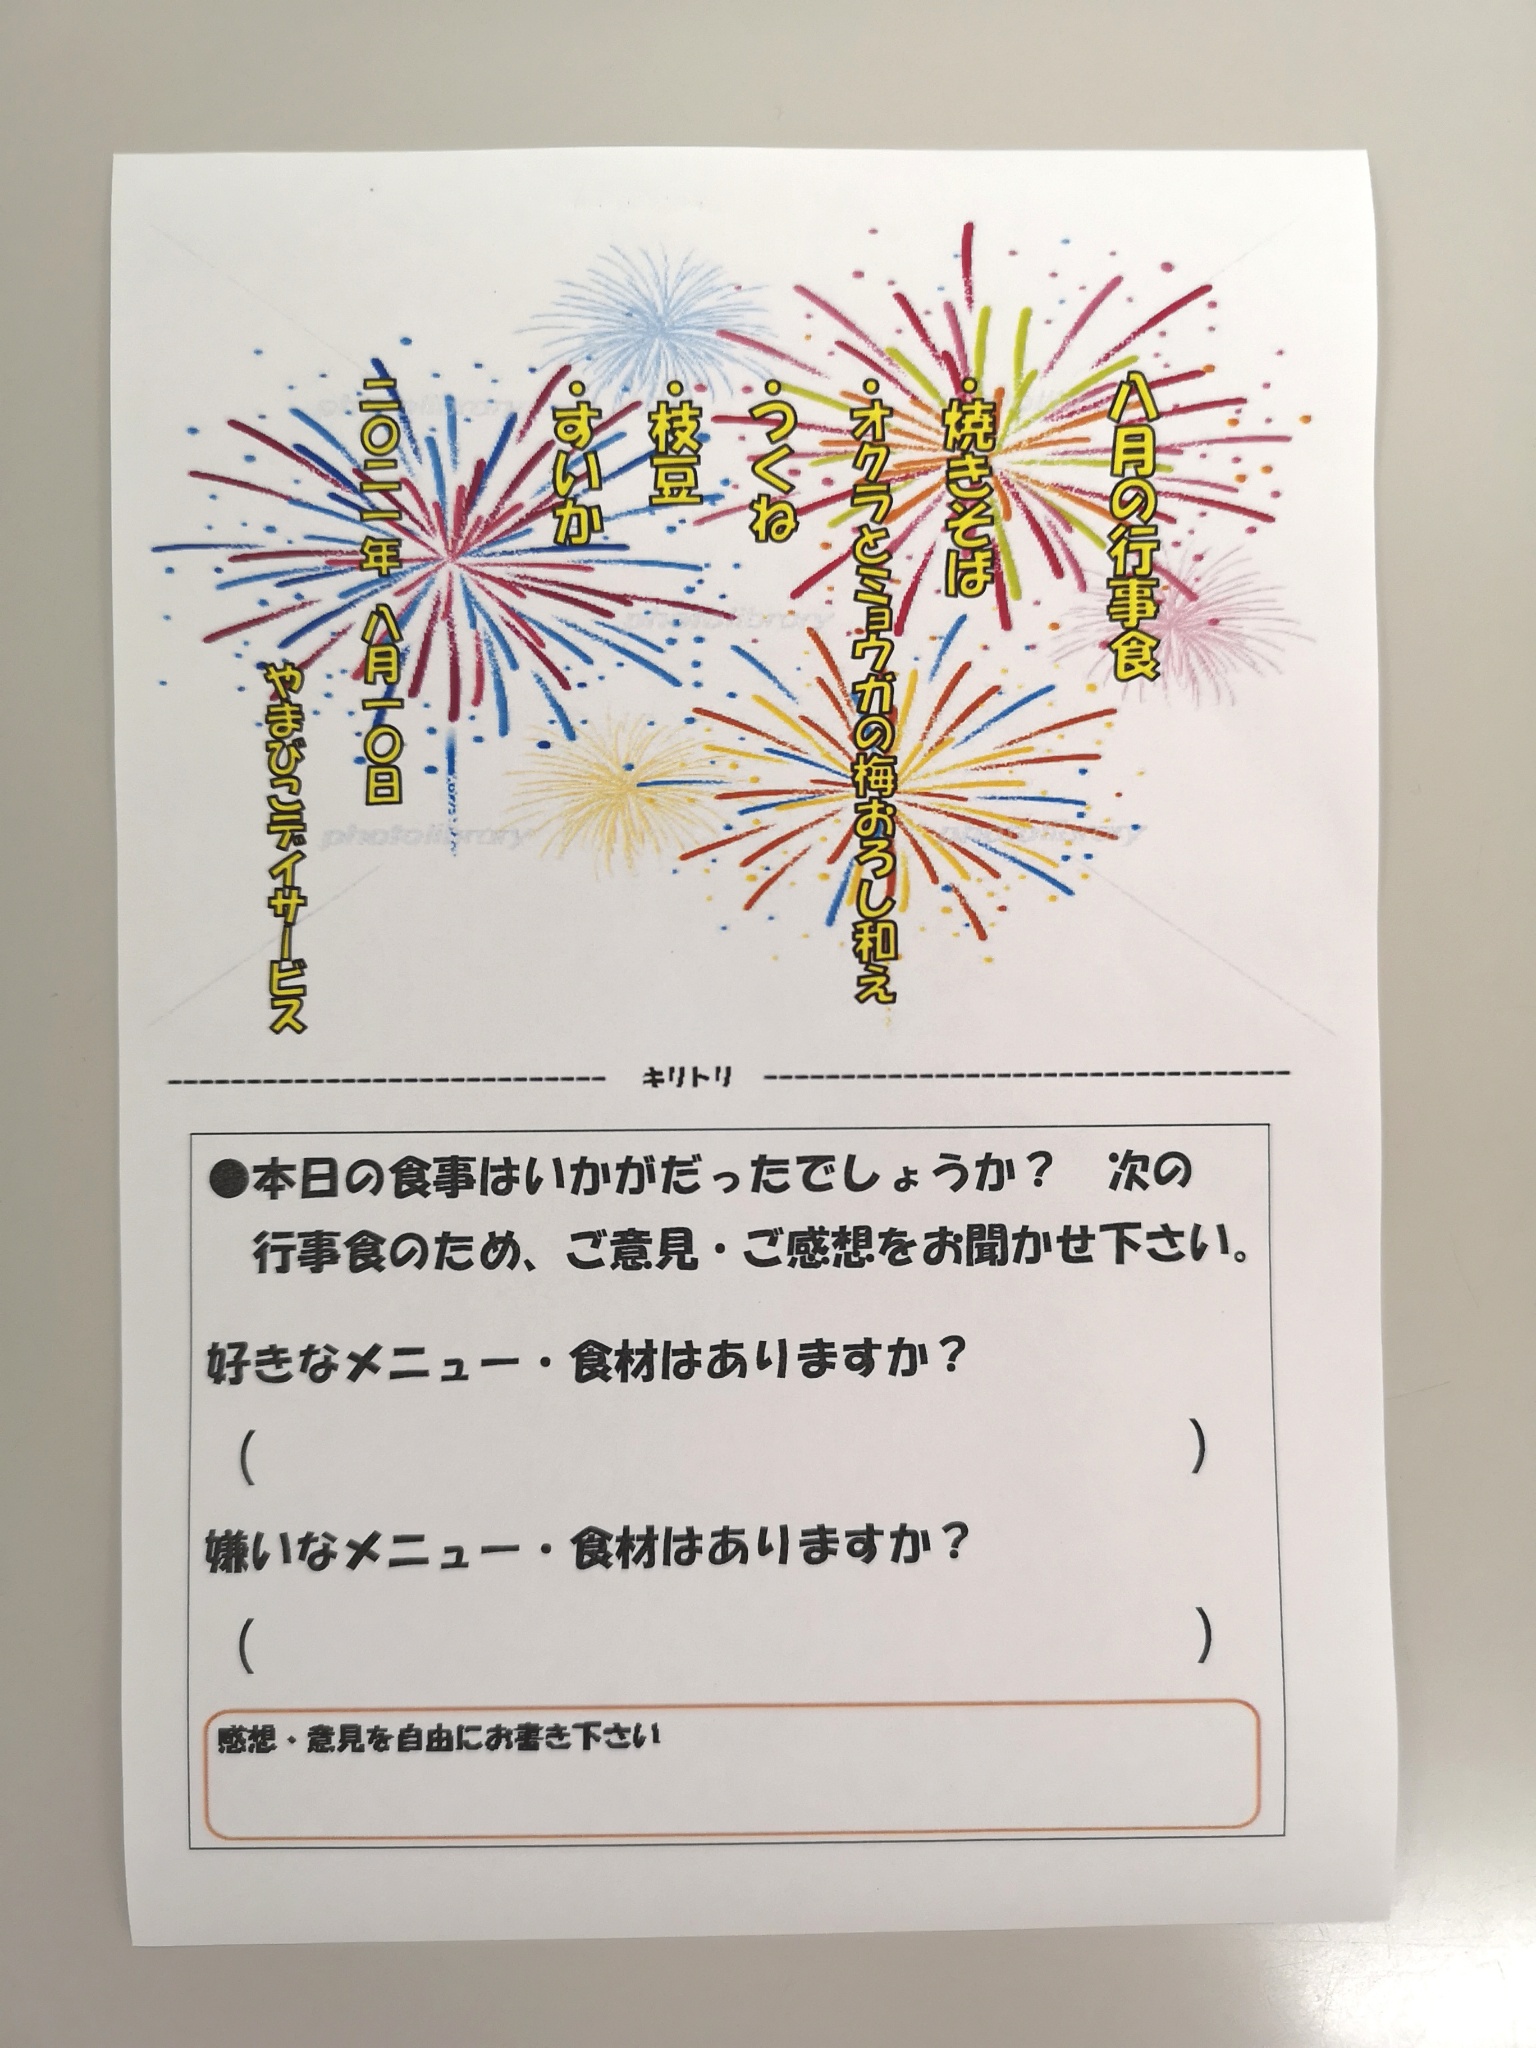 八月の行事食
・焼きそば
・オクラとミョウガの梅おろし和え
・つくね
・枝豆
・すいか
二〇二一年 八月一〇日
やまびこデイサービス
photolibrary
photolibrary
photolibrary
photolibrary
キリトリ
●本日の食事はいかがだったでしょうか？ 次の
行事食のため、ご意見・ご感想をお聞かせ下さい。
好きなメニュー・食材はありますか？
( )
嫌いなメニュー・食材はありますか？
( )
感想・意見を自由にお書き下さい